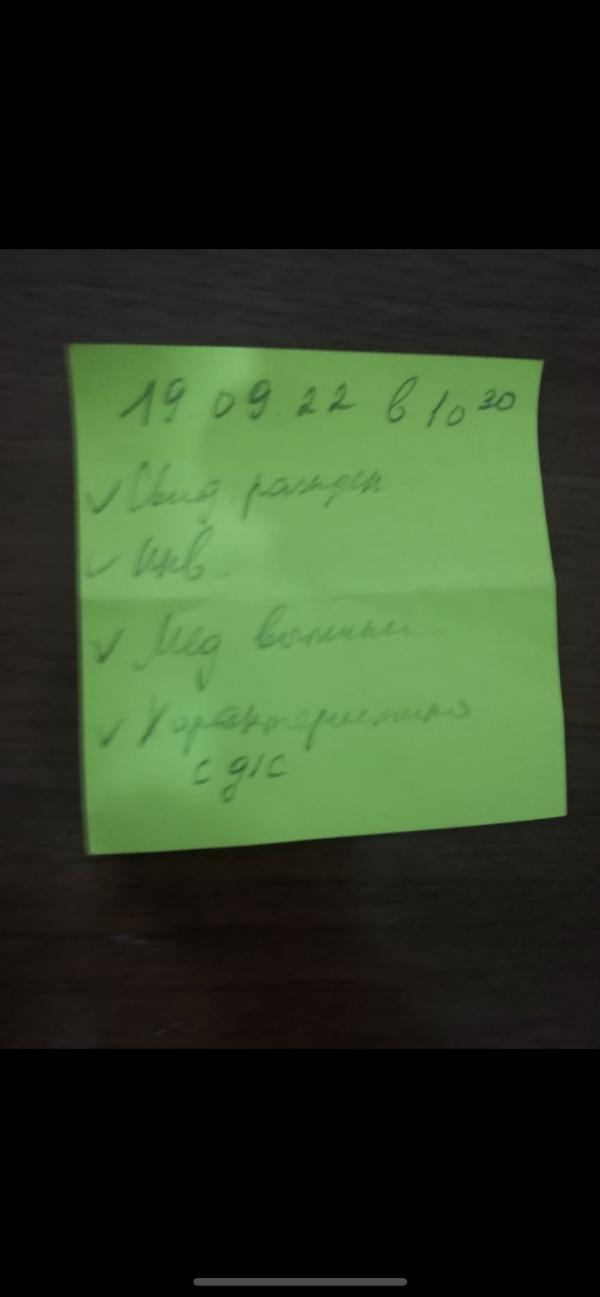 19.09.22 в 10 30
Свид. рожден
Инв.
Мед выписки
Характеристика
с д/с